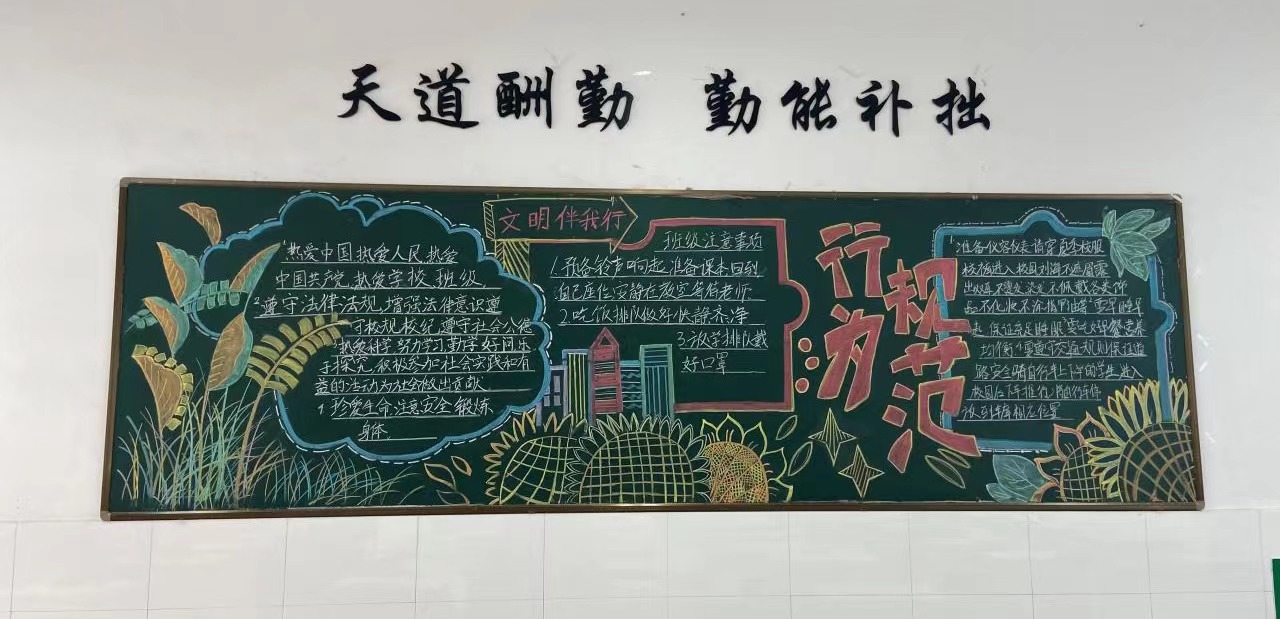 天道酬勤 勤能补拙
1.热爱中国,热爱人民,热爱
中国共产党,热爱学校,班级。
2.遵守法律法规,增强法律意识遵
守校规校纪,遵守社会公德
热爱科学努力学习勤学好问乐
于探究积极参加社会实践和有
益的活动为社会做出贡献
4.珍爱生命注意安全锻炼
身体。
文明伴我行
班级注意事项
1.预备铃声响起准备课本回到
自己座位安静在教室等待老师.
2.吃饭排队做好快静齐净
3.放学排队戴
好口罩
行为
规范
准备仪容仪表请穿夏季校服
不佩戴各类饰
品不化妆不涂指甲油
早睡早
起 保证充足睡眠 营养
均衡 遵守交通规则保证道
路安全骑自行车上下学的学生进入
校园后下车推行